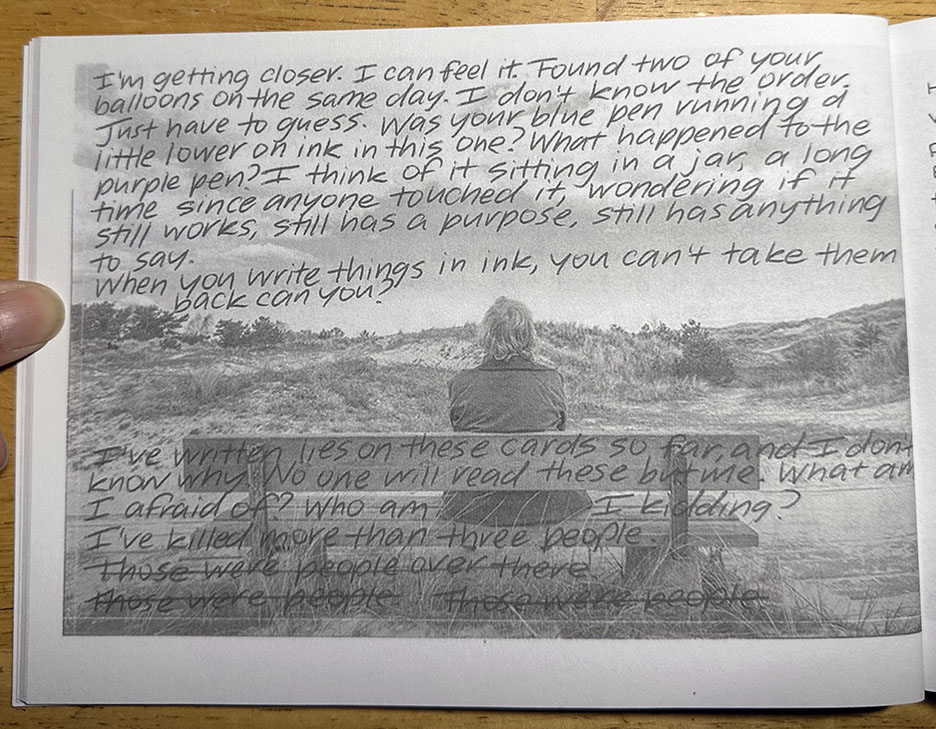 I'm getting closer. I can feel it. Found two of your
balloons on the same day. I don't know the order.
Just have to guess. Was your blue pen running a
little lower on ink in this one? What happened to the
purple pen? I think of it sitting in a jar, a long
time since anyone touched it, wondering if it
still works, still has a purpose, still has anything
to say.
When you write things in ink, you can't take them
back can you?
I've written lies on these cards so far, and I don't
know why. No one will read these but me. What am
I afraid of? Who am I kidding?
I've killed more than three people.
Those were people over there
those were people Those were people